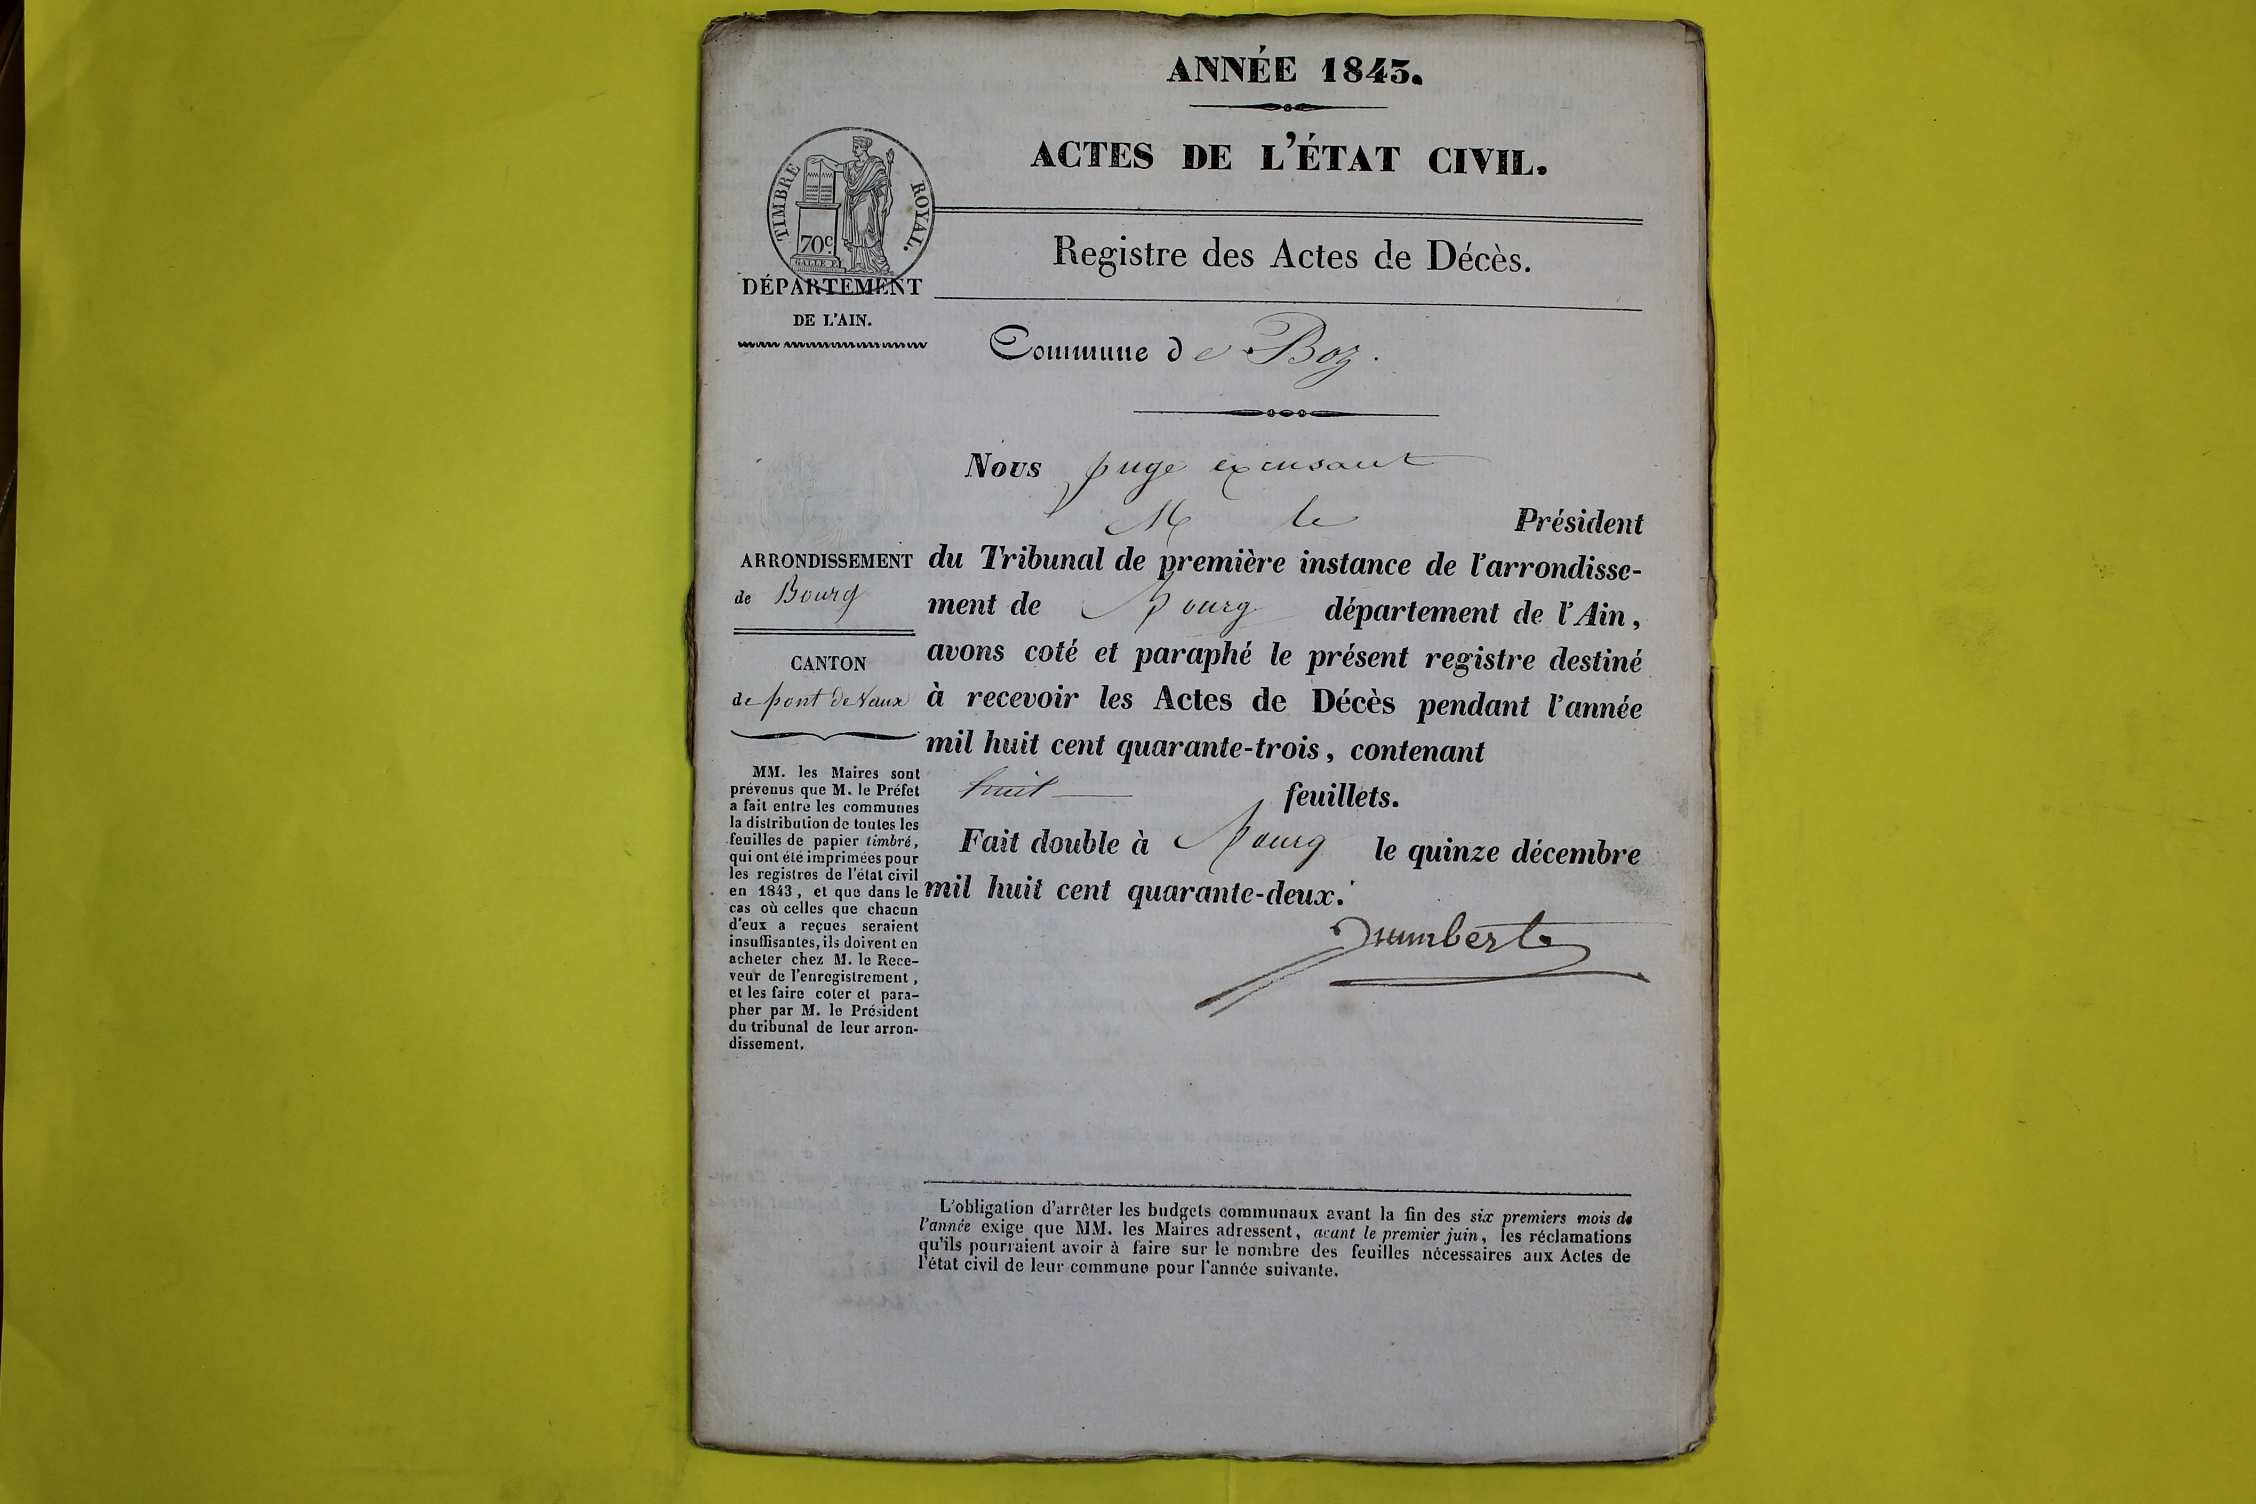 ANNÉE 1843.
ACTES DE L'ÉTAT CIVIL.
TIMBRE ROYAL.
70c.
GALLE F.
Registre des Actes de Décès.
DÉPARTEMENT
DE L'AIN.
Commune de Boz.
Nous juge excusant
M le Président
du Tribunal de première instance de l'arrondisse-
ment de Bourg département de l'Ain,
avons coté et paraphé le présent registre destiné
à recevoir les Actes de Décès pendant l'année
mil huit cent quarante-trois, contenant
huit feuillets.
Fait double à Bourg le quinze décembre
mil huit cent quarante-deux.
ARRONDISSEMENT
de Bourg
CANTON
de pont de Vaux
MM. les Maires sont
prévenus que M. le Préfet
a fait entre les communes
la distribution de toutes les
feuilles de papier timbré,
qui ont été imprimées pour
les registres de l'état civil
en 1843, et que dans le
cas où celles que chacun
d'eux a reçues seraient
insuffisantes, ils doivent en
acheter chez M. le Rece-
veur de l'enregistrement,
et les faire coter et para-
pher par M. le Président
du tribunal de leur arron-
dissement.
L'obligation d'arrêter les budgets communaux avant la fin des six premiers mois de
l'année exige que MM. les Maires adressent, avant le premier juin, les réclamations
qu'ils pourraient avoir à faire sur le nombre des feuilles nécessaires aux Actes de
l'état civil de leur commune pour l'année suivante.